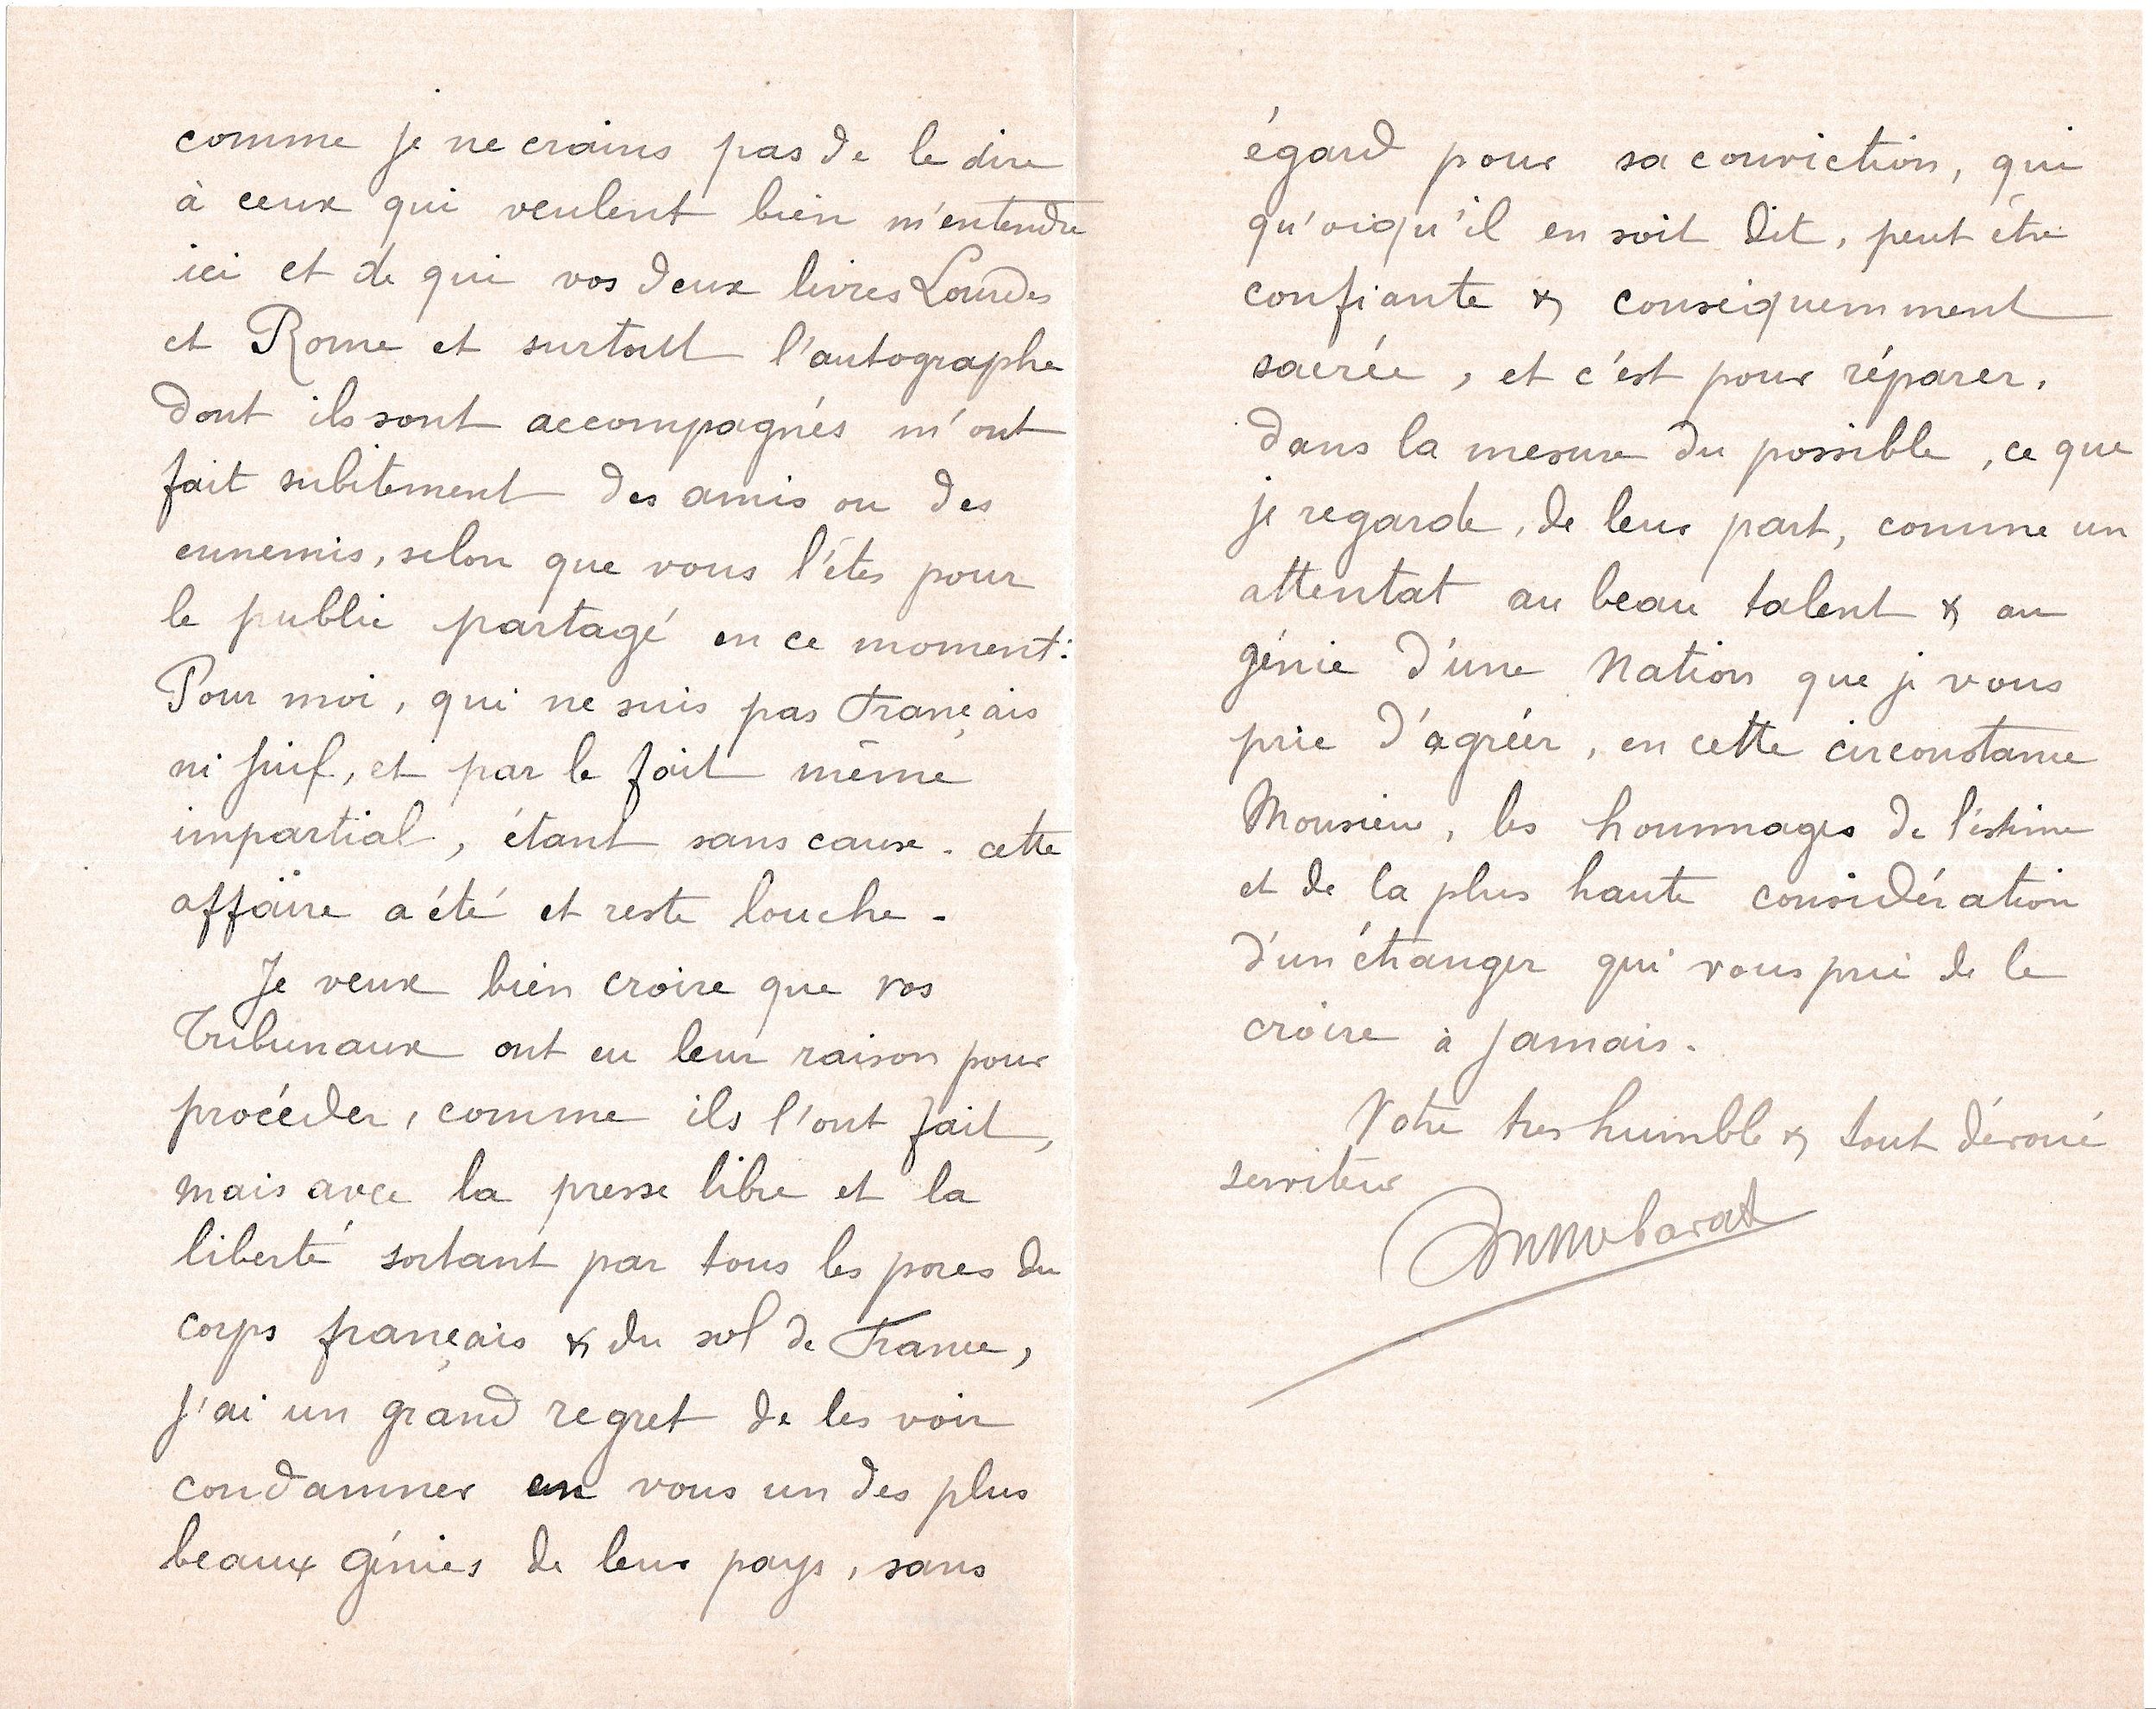 comme je ne crains pas de le dire
à ceux qui veulent bien m'entendre
ici et de qui vos deux livres Lourdes
et Rome et surtout l'autographe
dont ils sont accompagnés m'ont
fait subitement des amis ou des
ennemis, selon que vous l'êtes pour
le public partagé en ce moment:
Pour moi, qui ne suis pas Français
ni juif, et par le fait même
impartial, étant sans cause. cette
affaire a été et reste louche.
Je veux bien croire que vos
Tribunaux ont eu leur raison pour
procéder, comme ils l'ont fait,
mais avec la presse libre et la
liberté sortant par tous les pores du
corps français & du sol de France,
j'ai un grand regret de les voir
condamner en vous un des plus
beaux génies de leur pays, sans
égard pour sa conviction, qui
qu'oiqu'il en soit dit, peut être
confiante & conséquemment
sacrée, et c'est pour réparer,
dans la mesure du possible, ce que
je regarde, de leur part, comme un
attentat au beau talent & au
génie d'une Nation que je vous
prie d'agréer, en cette circonstance
Monsieur, les hommages de l'estime
et de la plus haute considération
d'un étranger qui vous prie de le
croire à jamais.
Votre très humble & tout dévoué
serviteur